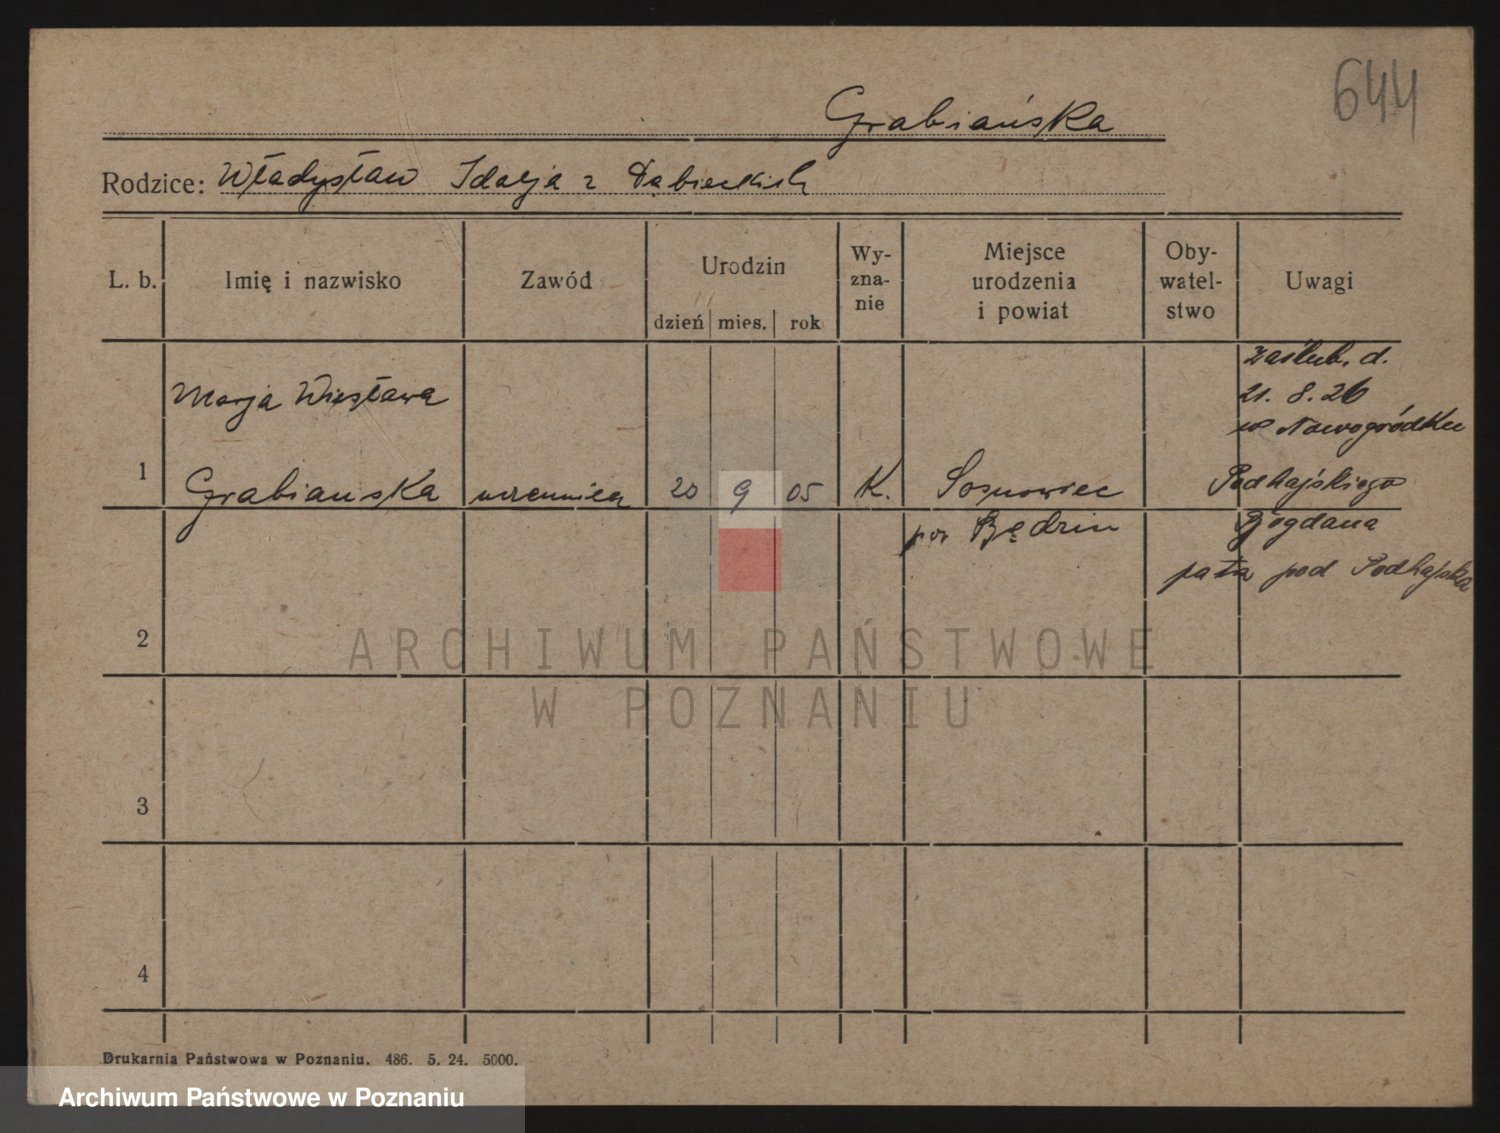 644
Grabiańska
Rodzice: Władysław Idalja z Dąbieckich
L. b.
Imię i nazwisko
Zawód
Urodzin
dzień mies. rok
Wy-
zna-
nie
Miejsce
urodzenia
i powiat
Oby-
watel-
stwo
Uwagi
1
Marja Wiesława
Grabianska
uczennica
20 9 05
K.
Sosnowiec
pow Będzin
zaślub. d.
21. 8. 26
w Nowogródku
Podhajskiego
Bogdana
pod Podhajska
2
3
4
ARCHIWUM PAŃSTWOWE
W POZNANIU
Drukarnia Państwowa w Poznaniu. 486. 5. 24. 5000.
Archiwum Państwowe w Poznaniu